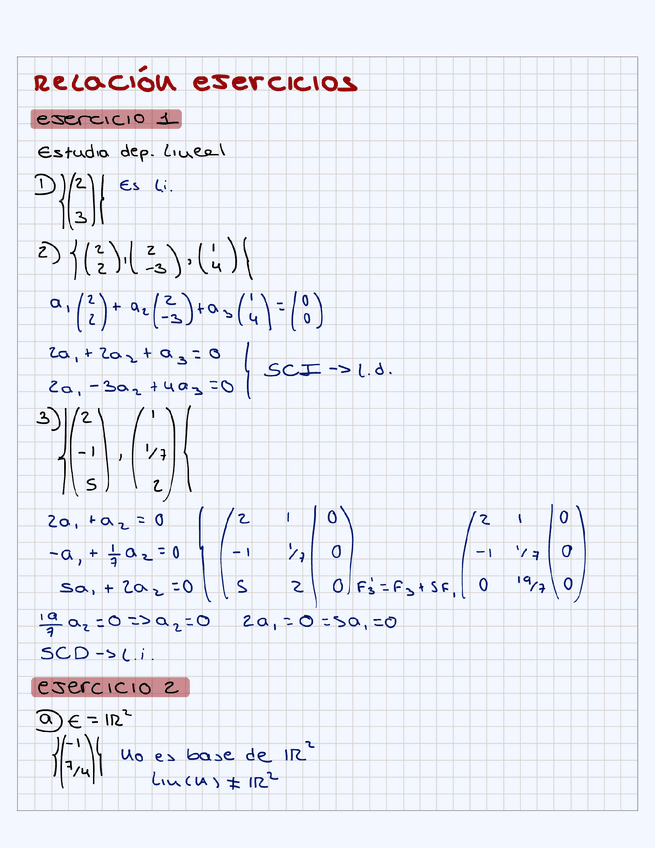 Relación ejercicios
ejercicio 1
Estudia dep. lineal
1) {(2 3)} Es li.
2) {(2 2), (2 -3), (1 4)}
a₁(2 2) + a₂(2 -3) + a₃(1 4) = (0 0)
2a₁ + 2a₂ + a₃ = 0
2a₁ - 3a₂ + 4a₃ = 0 } SCI -> l.d.
3) {(2 -1 5), (1 1/7 2)}
2a₁ + a₂ = 0 (2 1 | 0) (2 1 | 0)
-a₁ + 1/7 a₂ = 0 (-1 1/7 | 0) (-1 1/7 | 0)
5a₁ + 2a₂ = 0 (5 2 | 0) F₃' = F₃ + 5F₁ (0 19/7 | 0)
19/7 a₂ = 0 => a₂ = 0 2a₁ = 0 => a₁ = 0
SCD -> l.i.
ejercicio 2
a) E = IR²
{(-1 7/4)} No es base de IR²
Lin(H) ≠ IR²